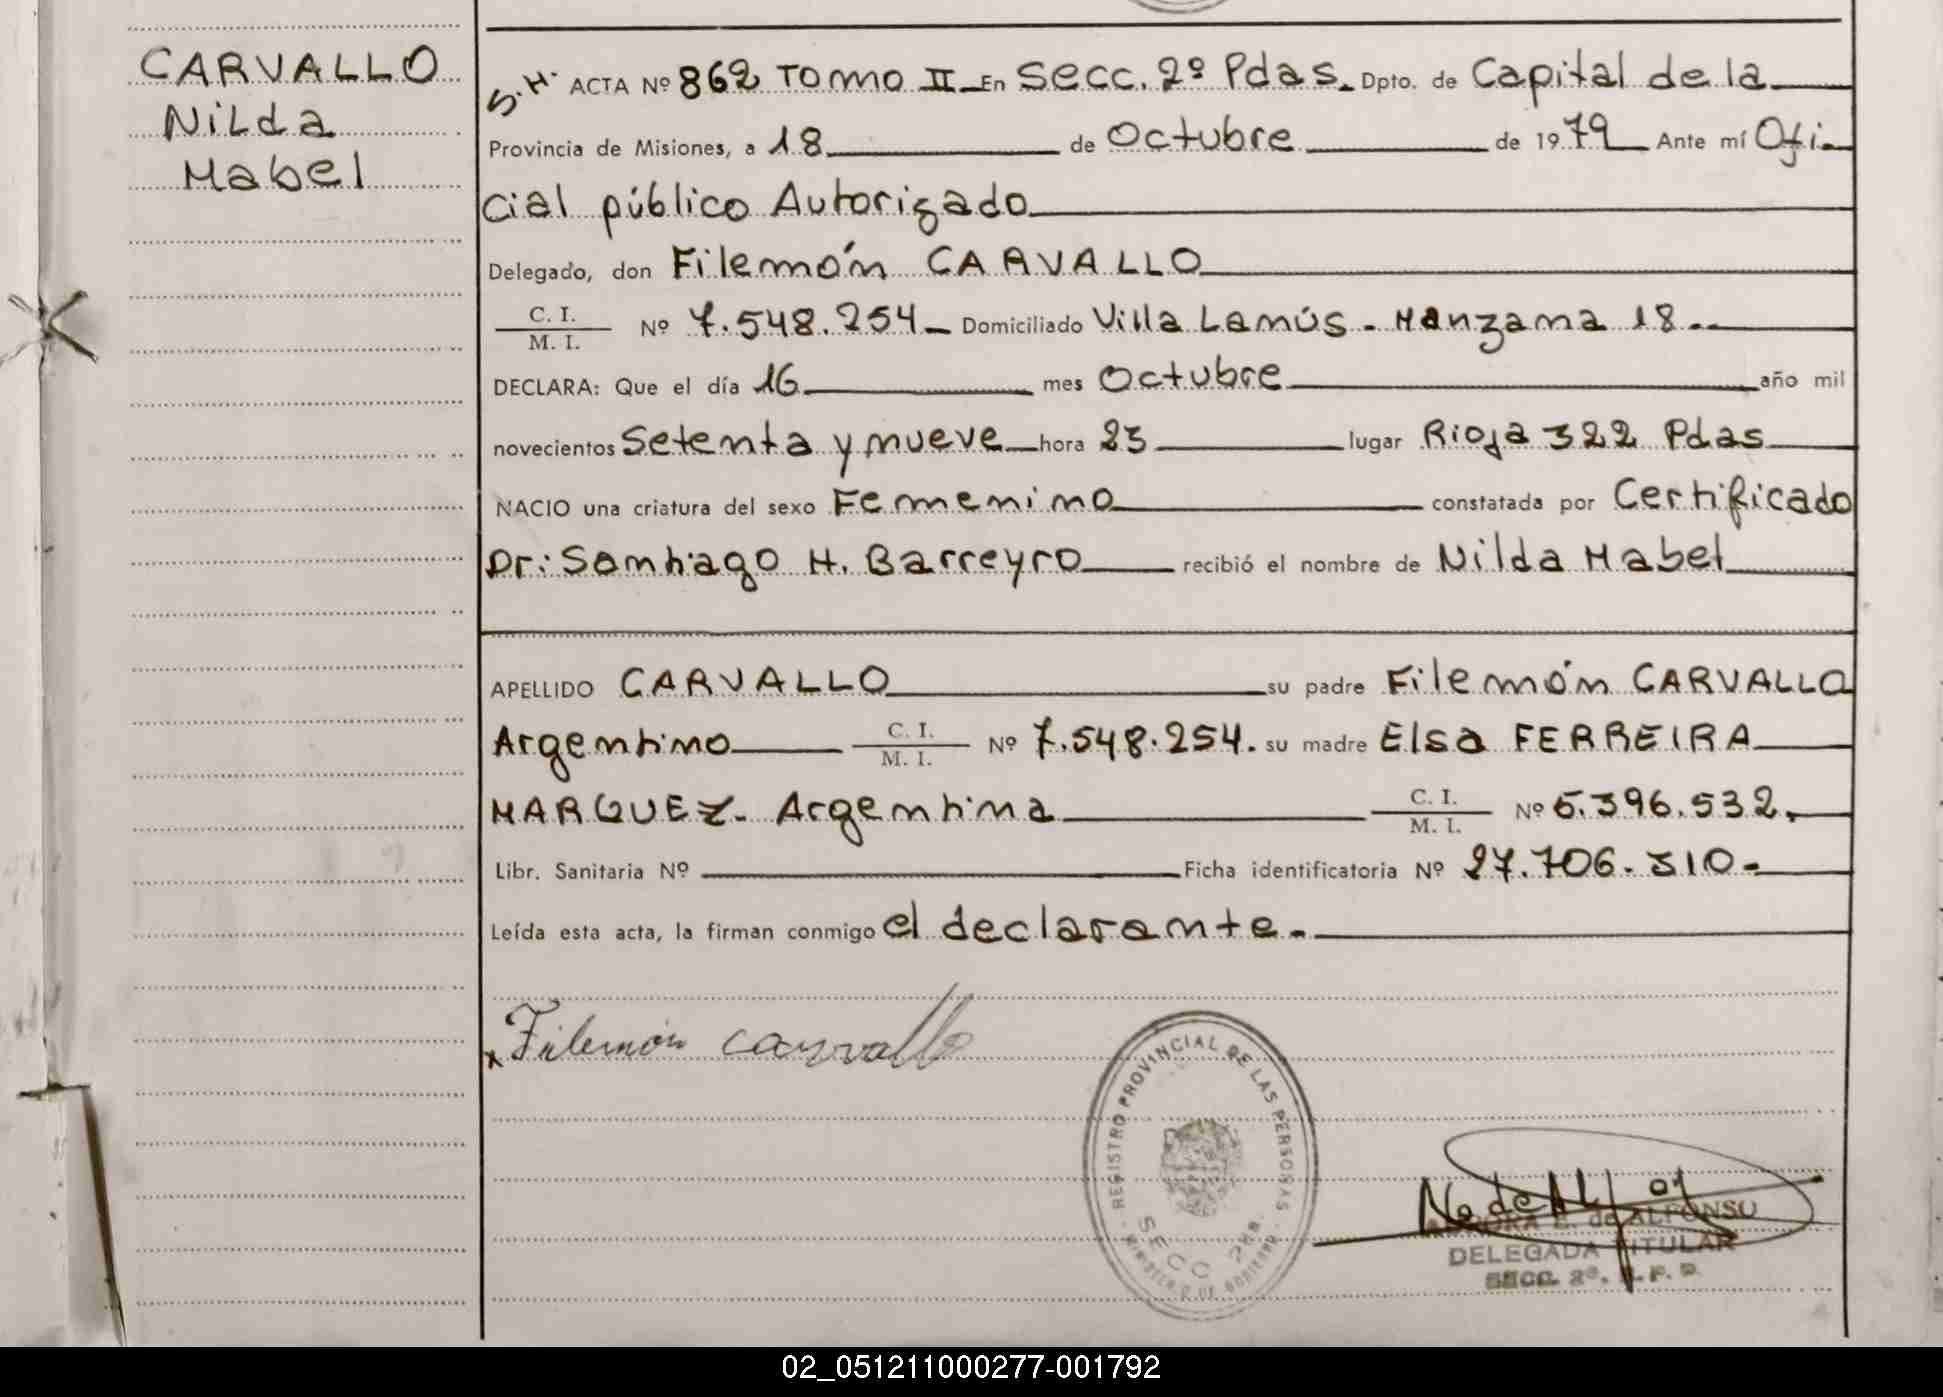 CARVALLO
Nilda
Mabel
S.H. ACTA Nº 862 Tomo II En Secc. 2º Pdas. Dpto. de Capital de la
Provincia de Misiones, a 18 de Octubre de 1979 Ante mí Ofi-
cial público Autorizado
Delegado, don Filemón CARVALLO
C. I.
M. I. Nº 7.548.254 Domiciliado Villa Lanús - Manzana 18.-
DECLARA: Que el día 16 mes Octubre año mil
novecientos Setenta y nueve hora 23 lugar Rioja 322 Pdas
NACIO una criatura del sexo Femenino constatada por Certificado
Dr: Santiago H. Barreyro recibió el nombre de Nilda Mabel
APELLIDO CARVALLO su padre Filemón CARVALLO
Argentino C. I. M. I. Nº 7.548.254. su madre Elsa FERREIRA
MARQUEZ- Argentina C. I. M. I. Nº 6.396.532.
Libr. Sanitaria Nº Ficha identificatoria Nº 27.706.310-
Leída esta acta, la firman conmigo el declarante.-
x Filemón carvallo
REGISTRO PROVINCIAL DE LAS PERSONAS
SECC 2da.
MINISTERIO DE GOBIERNO
E. de ALFONSO
DELEGADA TITULAR
SECC. 2ª. R. P. P.
02_051211000277-001792